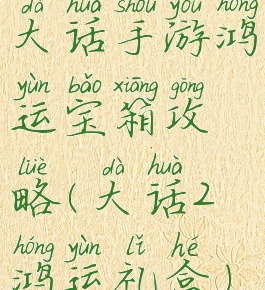 dà huà shǒu yóu hóng
大话手游鸿
yùn bǎo xiāng gōng
运宝箱攻
lüè dà huà
略(大话2
hóng yùn lǐ hé
鸿运礼盒)